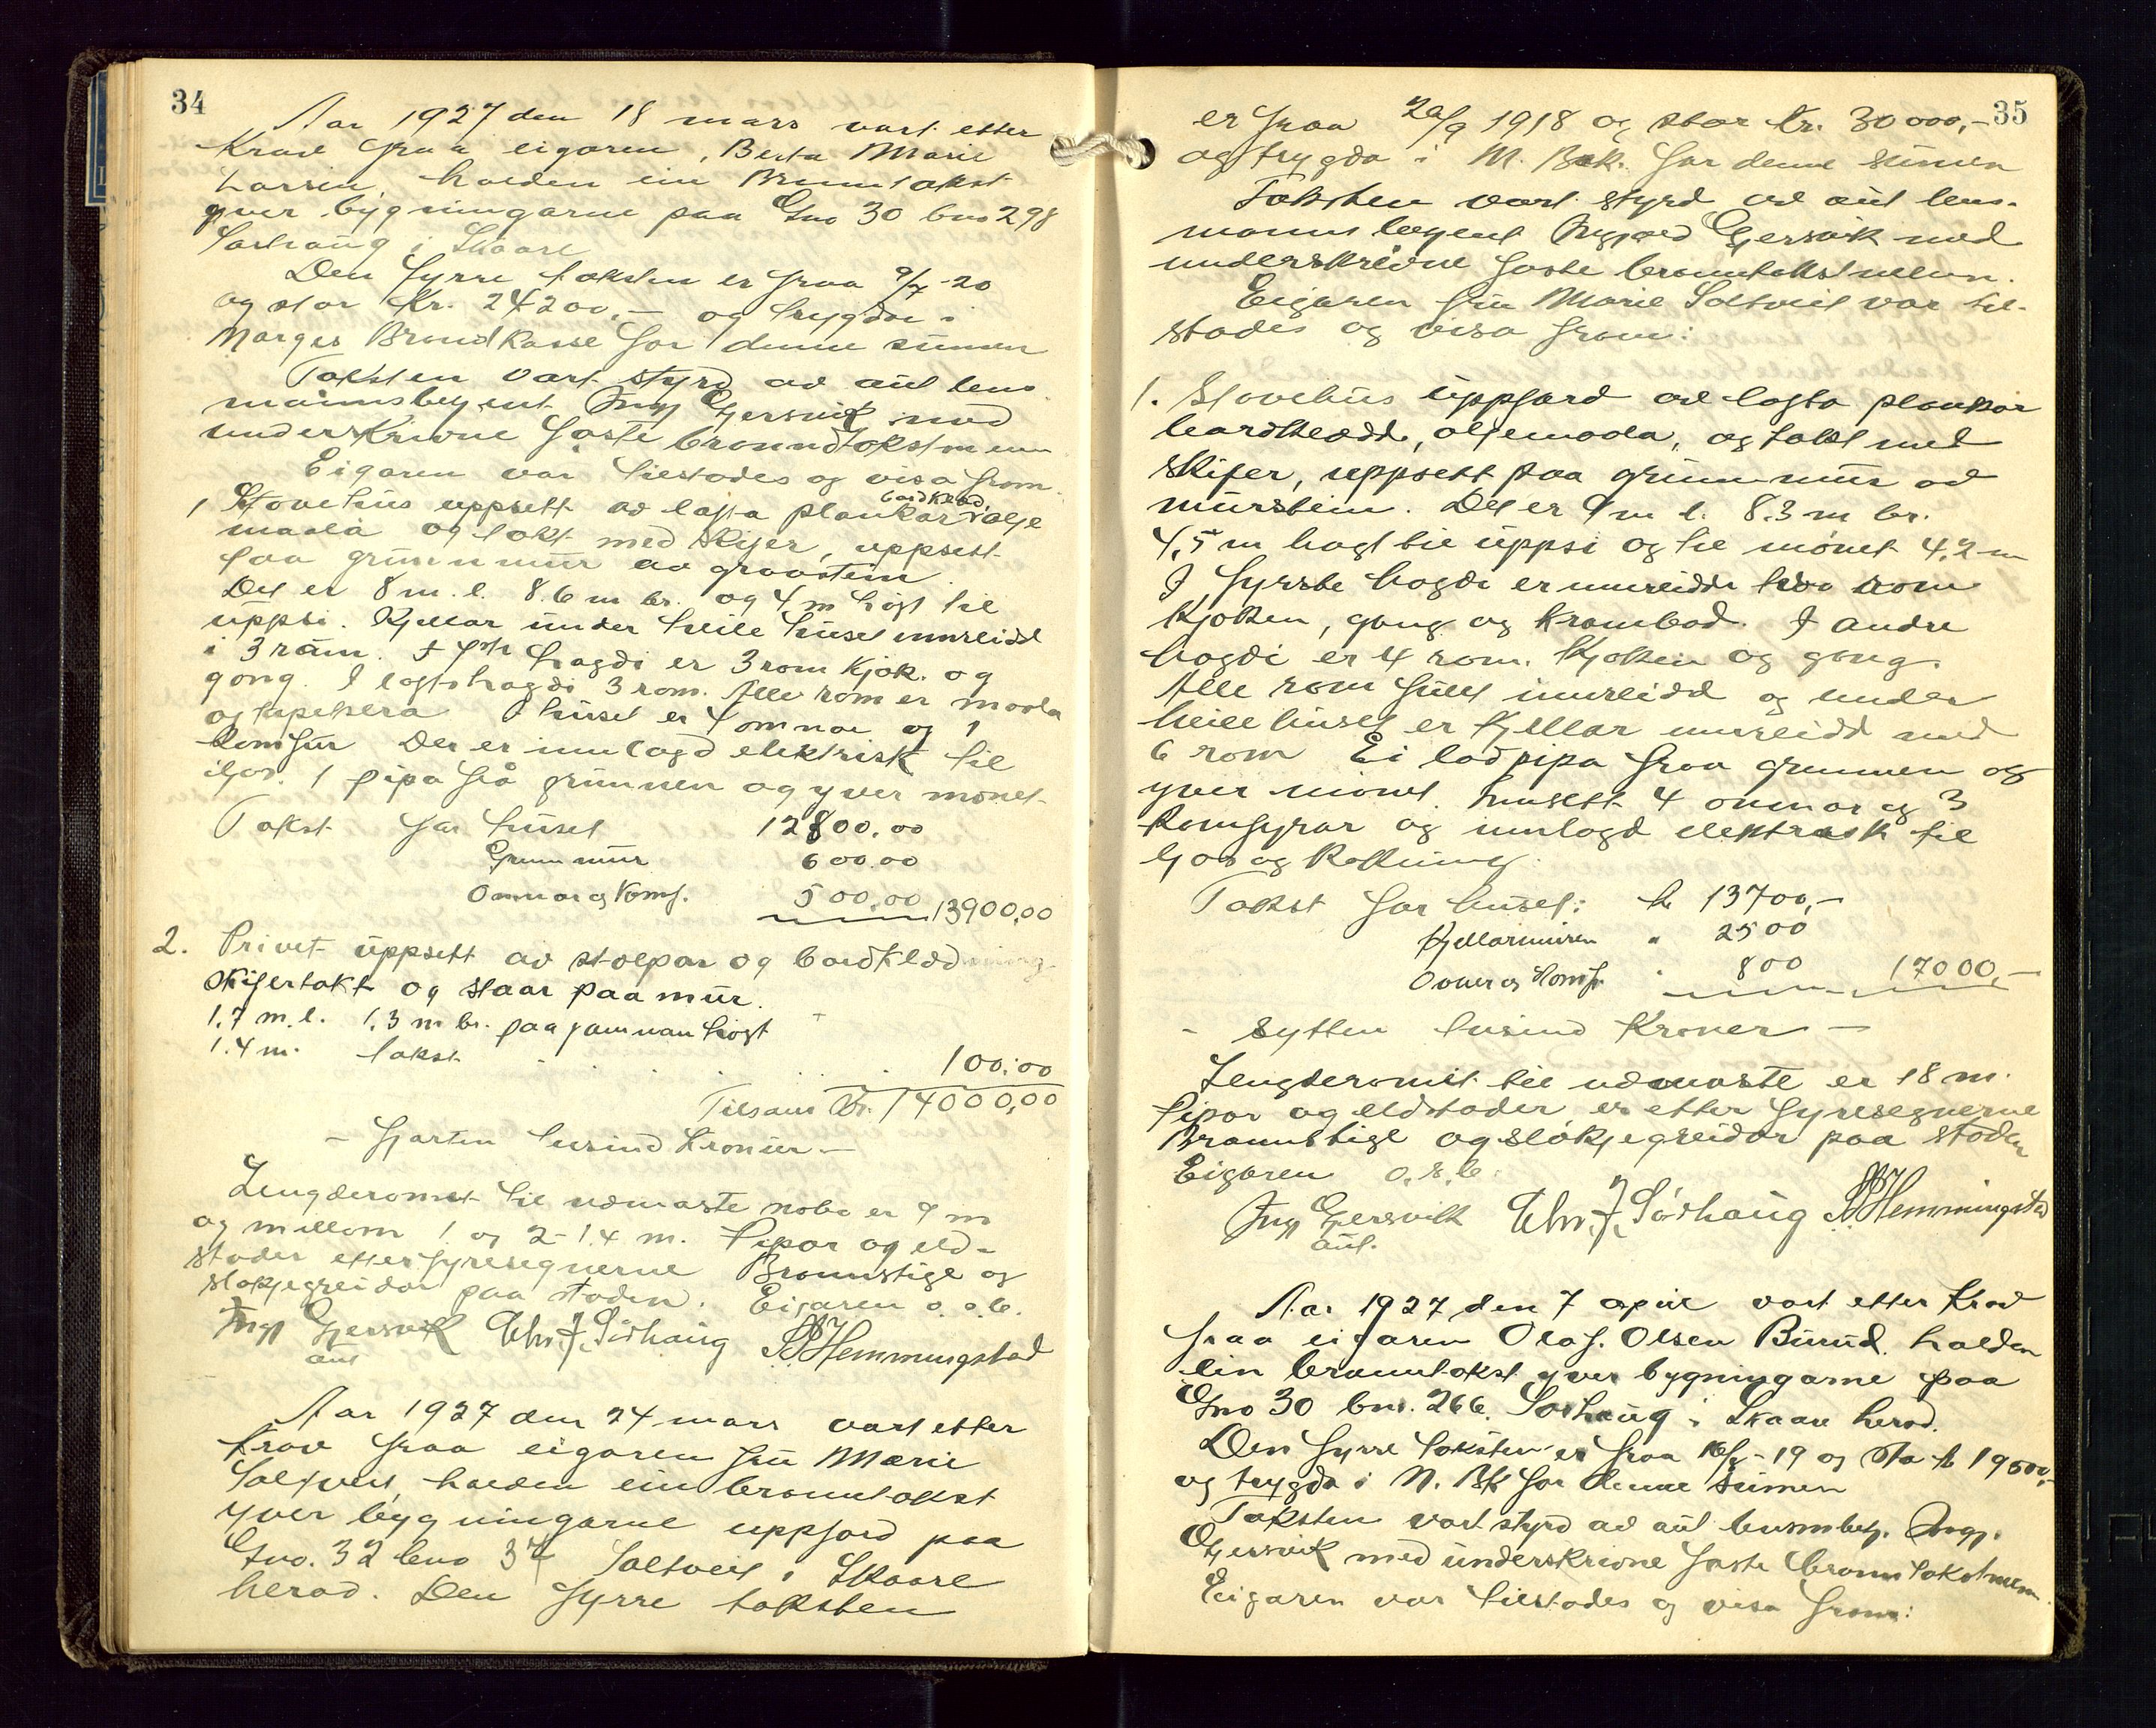 34
Aar 1927 den 18 mars vart etter
Krav fraa eigaren, Berta Marie
Larsen, halden ein Branntakst
yver bygningarne paa Gno 30 bno 298
Sørhaug i Skaare
Den fyrre taksten er fraa 9/7-20
og stor kr. 24200,- og trygda i
Norges Brandkasse for denne summen
Taksten vart styrd av aut lens
mannsbetjent Ing Gjersvik med
underskrivne faste branntakstmenn.
Eigaren var tilstades og visa fram.
1 Stovehus uppsett av lafta plankar bordklæd, olje
maala og takt med skifer, uppsett
paa grunnmur av graastein.
Det er 8 m. l. 8.6 m br. og 4 m høgt til
uppsi. Kjellar under heile huset innreidd
i 3 rum. I fyrste høgdi er 3 rom kjøk. og
gong. I loftshøgdi 3 rom. Alle rom er maala
og tapetsera I huset er 4 omnar og 1
komfur Der er innlagd elektrisk til
ljos. 1 pipa frå grunnen og yver mønet-
Takst for huset 12800.00
Grunnmur 600.00
Omnar og komf. 500.00 13900,00
2. Privet uppsett av stolpar og bordklædning
skifertakt og staar paa mur.
1.7 m. l. 1.3 m br. paa jamnan høgt
1.4 m. takst . . . . . . 100.00
Tilsam Kr. 14000,00
- fjorten tusind kroner. -
Lengderomet til nærmaste nabo er 9 m
og millom 1 og 2 - 1.4 m. Pipor og eld-
stader etter fyresegnerne Brannstige og
sløkjegreidor paa staden. Eigaren o. s. b.
Ing Gjersvik Chr. J. Sørhaug B B Hemmingstad
aut
Aar 1927 den 24 mars vart etter
krav fraa eigaren fru Marie
Saltveit, halden ein branntakst
yver bygningarne uppførd paa
Gno. 32 bno 37 Saltveit i Skaare
herad. Den fyrre taksten
35
er fraa 20/9 1918 og stor kr. 30000,-
og trygda i N. Brk. for denne summen
Taksten vart styrd av aut lens-
manns betjent Ingvard Gjersvik med
underskrivne faste branntakstmenn.
Eigaren fru Marie Saltveit var til-
stades og visa fram:
1. Stovehus uppførd av lafta plankar
bordklædd, oljemaala, og takt med
skifer, uppsett paa grunnmur av
murstein. Det er 9 m l. 8.3 m br.
4,5 m høgt til uppsi og til mønet 4,2 m
I fyrste høgdi er innreidde two rom
kjøken, gong og krambod. I andre
høgdi er 4 rom. Kjøken og gong.
Alle rom fullt innreidd og under
heile huset er kjellar innreidd med
6 rom Ei lad pipa fraa grunnen og
yver mønet. Innsett 4 omnar og 3
komfyrar og innlagd elektrisk til
ljos og kokning.
Takst for huset: kr 13700,-
Kjellarmuren " 2500
Ovner og Komf. " 800 17000,-
- sytten tusind Kroner -
Lengderomet til nærmaste er 18 m.
Pipor og eldstader er etter fyresegnerne
Brannstige og sløkjegreidor paa staden
Eigaren o. s. b.
Ing Gjersvik Chr. J. Sørhaug B B Hemmingstad
aut.
Aar 1927 den 7 april vart etter krav
fraa eigaren Olaf. Olsen Burud. halden
ein branntakst yver bygningarne paa
Gno 30 bno. 266. Sørhaug i Skaare herad.
Den fyrre taksten er fraa 16/8-19 og sto kr 19500,-
og trygda i N. Bk for denne summen
Taksten vart styrd av aut lensmbetj. Ing.
Gjersvik med underskrivne faste branntakstmenn.
Eigaren var tilstades og visa fram: